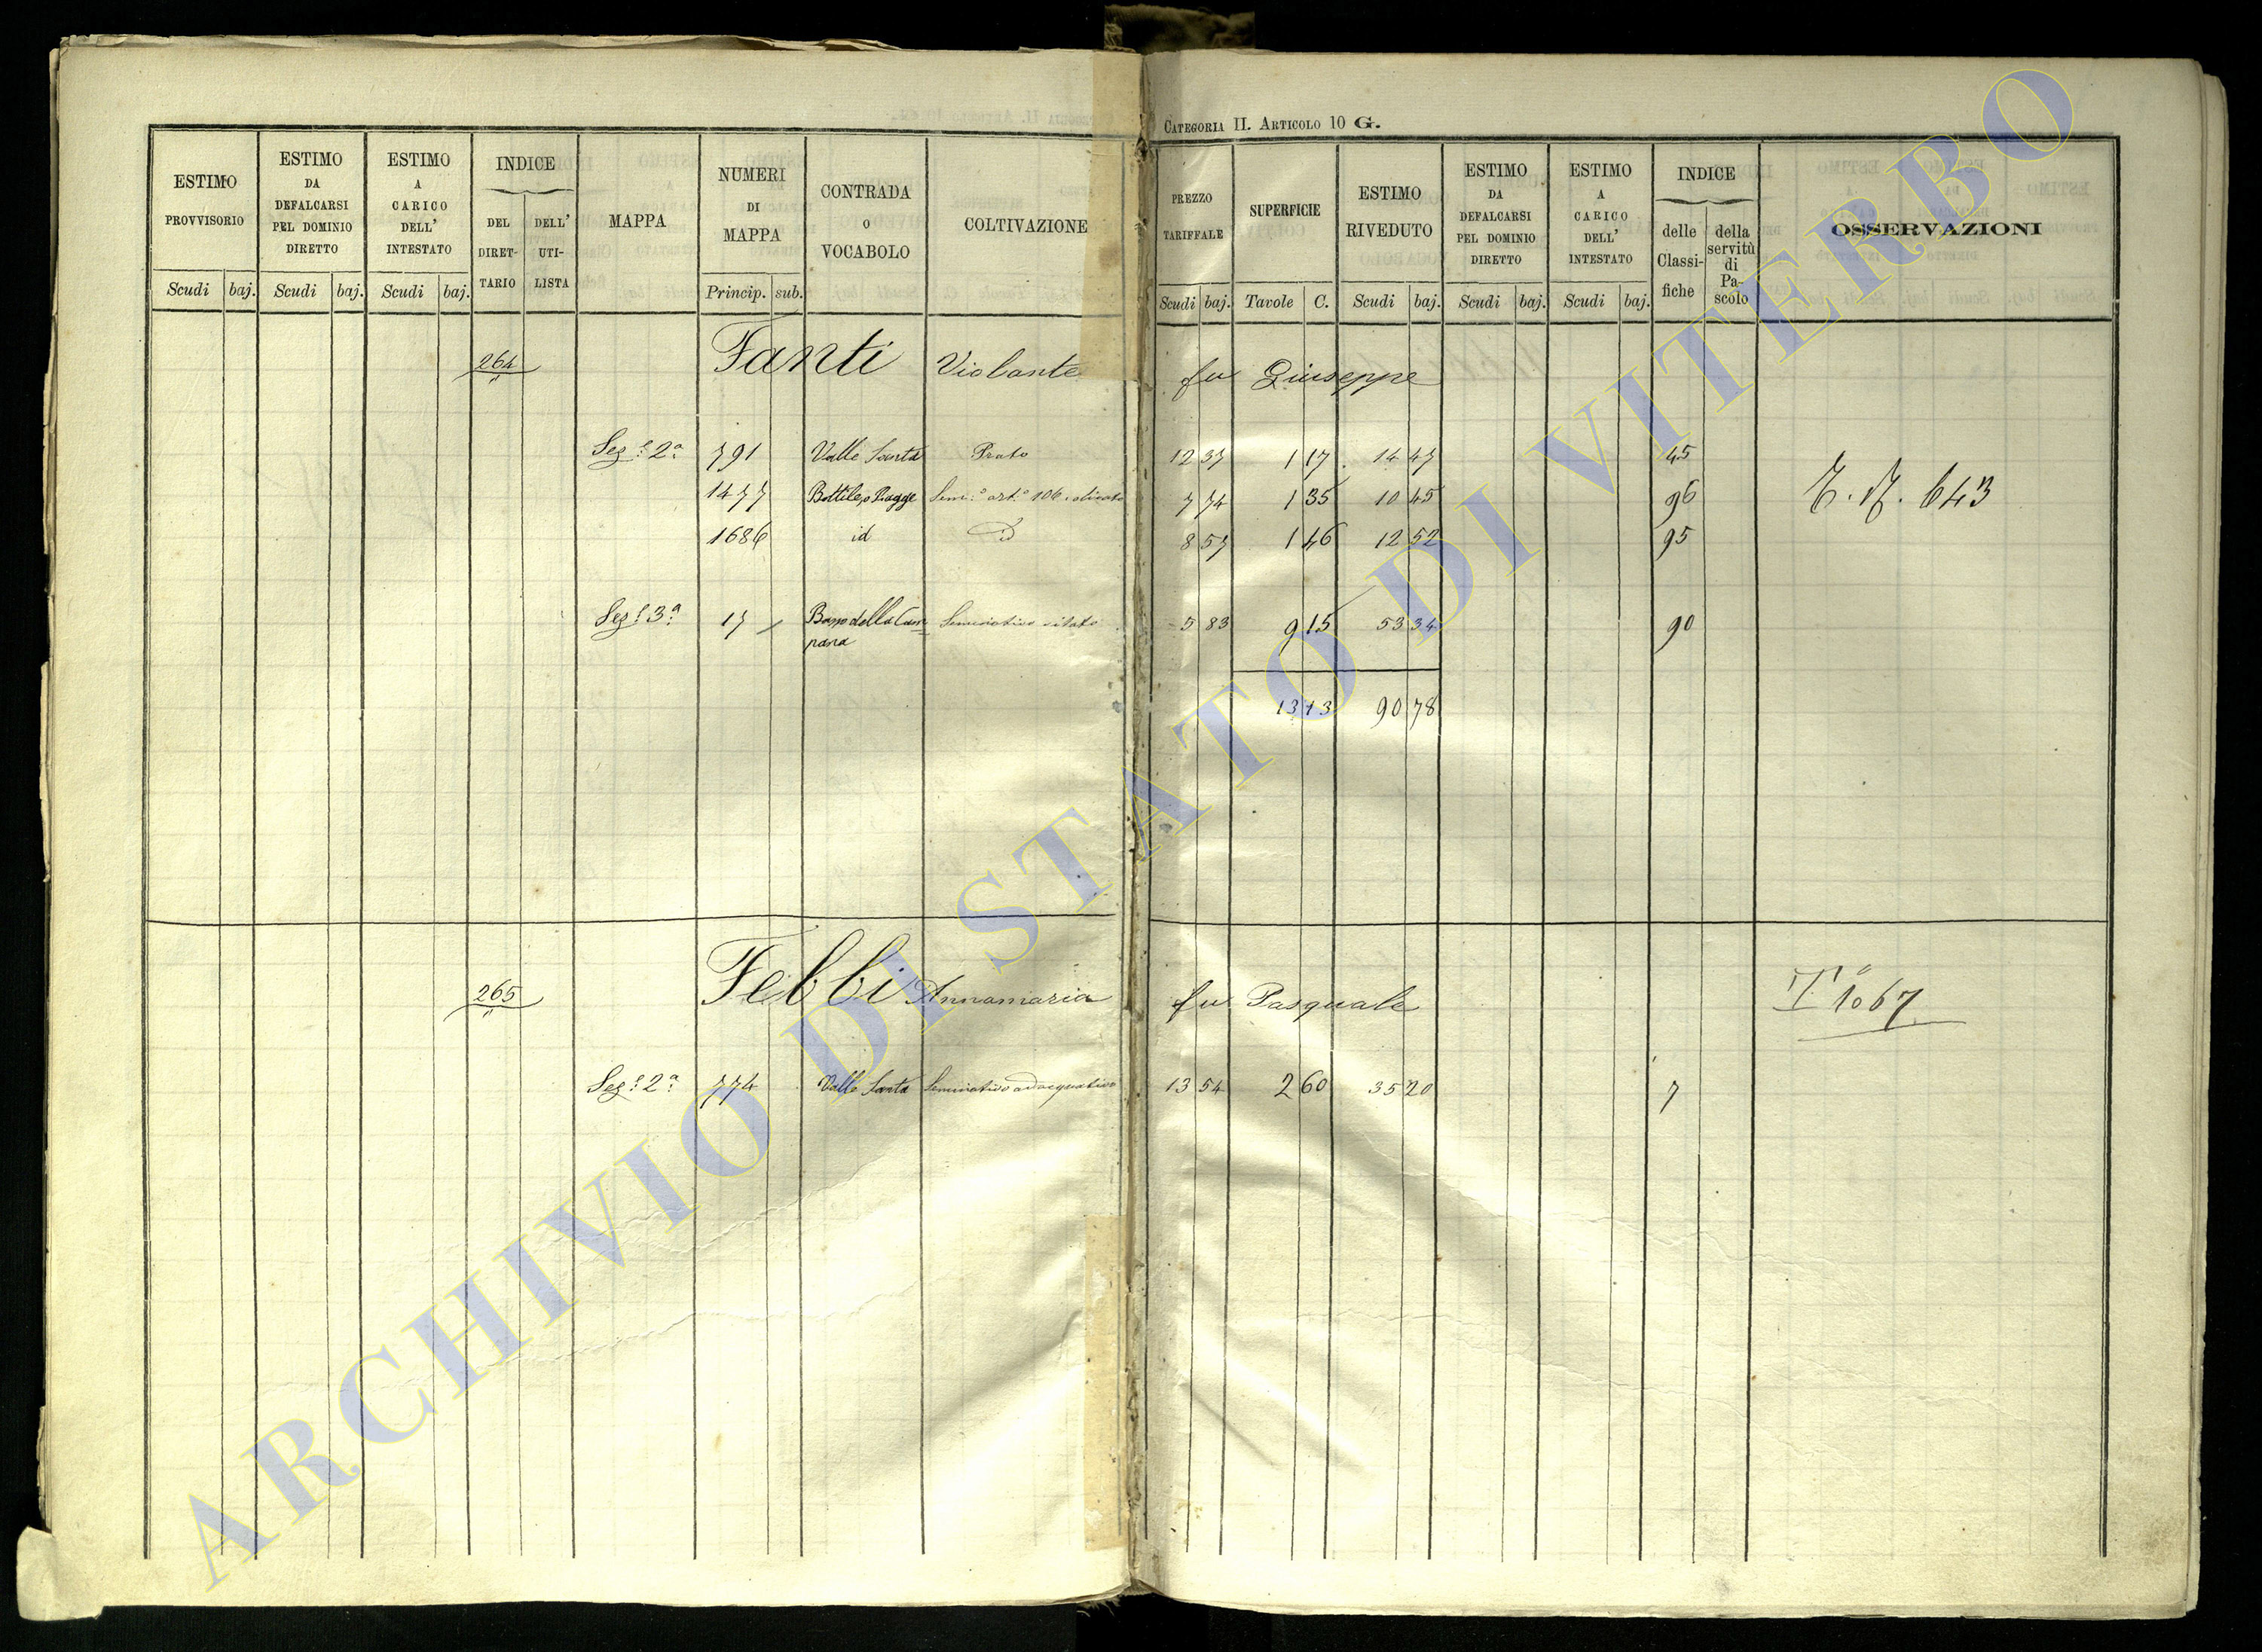 CATEGORIA II. ARTICOLO 10 G.
ESTIMO PROVVISORIO
Scudi baj.
ESTIMO DA DEFALCARSI PEL DOMINIO DIRETTO
Scudi baj.
ESTIMO A CARICO DELL' INTESTATO
Scudi baj.
INDICE
DEL DIRET-TARIO
DELL' UTI-LISTA
MAPPA
NUMERI DI MAPPA
Princip. sub.
CONTRADA o VOCABOLO
COLTIVAZIONE
PREZZO TARIFFALE
Scudi baj.
SUPERFICIE
Tavole C.
ESTIMO RIVEDUTO
Scudi baj.
ESTIMO DA DEFALCARSI PEL DOMINIO DIRETTO
Scudi baj.
ESTIMO A CARICO DELL' INTESTATO
Scudi baj.
INDICE
delle Classi-fiche
della servitù di Pa-scolo
OSSERVAZIONI
264 Fanti Violante fu Giuseppe
Sez.e 2a 791 Valle Santa Prato 12 37 1 17 14 47 45
1477 Piagge 7 74 1 35 10 45 96
643
1686 id 8 57 1 46 12 52 95
Sez.e 3a 17 della Cam
pana Seminativo vitato 5 83 9 15 53 34 90
13 13 90 78
265 Febbi Annamaria fu Pasquale
T° 1067
Sez.e 2a 774 Valle Santa Seminativo adacquativo 13 54 2 60 35 20 7
ARCHIVIO DI STATO DI VITERBO